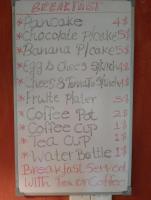 BREAKFAST
*Pancake 4$
*Chocolate P/cake 5$
*Banana P/cake 5$
*Egg & Chees S/wid 4$
*Chees & Tomato S/wid 4$
*Fruite Plater 5$
*Coffee Pot 2$
*Coffee Cup 1$
*Tea Cup 1$
*Water Bottle 1$
Breakfast Served
With Tea or Coffee